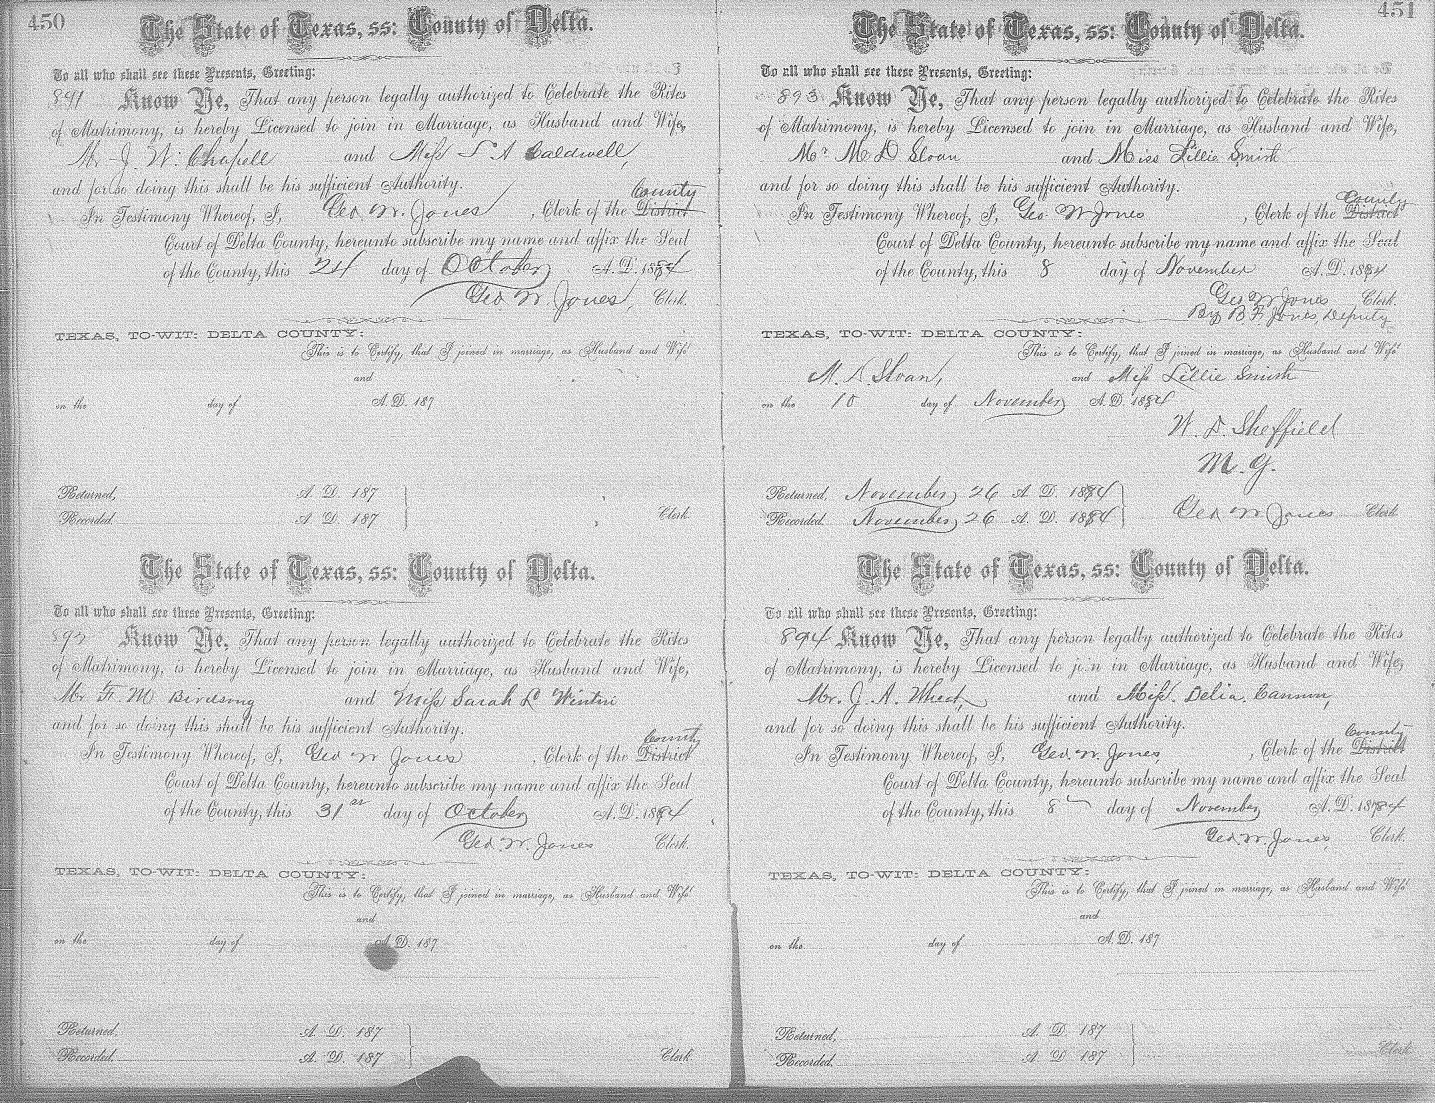 450
The State of Texas, ss: County of Delta.
To all who shall see these Presents, Greeting:
891 Know Ye, That any person legally authorized to Celebrate the Rites
of Matrimony, is hereby Licensed to join in Marriage, as Husband and Wife,
Mr J. W. Chapell and Miss S A Caldwell,
and for so doing this shall be his sufficient Authority.
County
In Testimony Whereof, I, Geo. W. Jones, Clerk of the District
Court of Delta County, hereunto subscribe my name and affix the Seal
of the County, this 24 day of October A. D. 1884
Geo. W. Jones, Clerk.
TEXAS, TO-WIT: DELTA COUNTY:
This is to Certify, that I joined in marriage, as Husband and Wife
and
on the day of A. D. 187
Returned, A. D. 187
Recorded A. D. 187 Clerk
The State of Texas, ss: County of Delta.
To all who shall see these Presents, Greeting:
892 Know Ye, That any person legally authorized to Celebrate the Rites
of Matrimony, is hereby Licensed to join in Marriage, as Husband and Wife,
Mr F. M Birdsong and Miss Sarah L
and for so doing this shall be his sufficient Authority.
County
In Testimony Whereof, I, Geo W Jones, Clerk of the District
Court of Delta County, hereunto subscribe my name and affix the Seal
of the County, this 31st day of October A. D. 1884
Geo. W. Jones Clerk.
TEXAS, TO-WIT: DELTA COUNTY:
This is to Certify, that I joined in marriage, as Husband and Wife
and
on the day of A. D. 187
Returned, A. D. 187
Recorded. A. D. 187 Clerk
451
The State of Texas, ss: County of Delta.
To all who shall see these Presents, Greeting:
893 Know Ye, That any person legally authorized to Celebrate the Rites
of Matrimony, is hereby Licensed to join in Marriage, as Husband and Wife,
Mr M D Sloan and Miss Lillie Smith
and for so doing this shall be his sufficient Authority.
County
In Testimony Whereof, I, Geo W Jones, Clerk of the District
Court of Delta County, hereunto subscribe my name and affix the Seal
of the County, this 8 day of November A. D. 1884
Geo W Jones Clerk.
By B F Jones, Deputy
TEXAS, TO-WIT: DELTA COUNTY:
This is to Certify, that I joined in marriage, as Husband and Wife
M. D. Sloan, and Miss Lillie Smith
on the 10 day of November A. D. 1884
W. D. Sheffield
M. G.
Returned, November 26 A. D. 1884
Recorded November 26 A. D. 1884 Geo W Jones Clerk
The State of Texas, ss: County of Delta.
To all who shall see these Presents, Greeting:
894 Know Ye, That any person legally authorized to Celebrate the Rites
of Matrimony, is hereby Licensed to join in Marriage, as Husband and Wife,
Mr. J. A. Wheat, and Miss. Delia Cannon,
and for so doing this shall be his sufficient Authority.
County
In Testimony Whereof, I, Geo. W. Jones, Clerk of the District
Court of Delta County, hereunto subscribe my name and affix the Seal
of the County, this 8 day of November A. D. 1884
Geo. W. Jones, Clerk.
TEXAS, TO-WIT: DELTA COUNTY:
This is to Certify, that I joined in marriage, as Husband and Wife
and
on the day of A. D. 187
Returned, A. D. 187
Recorded. A. D. 187 Clerk